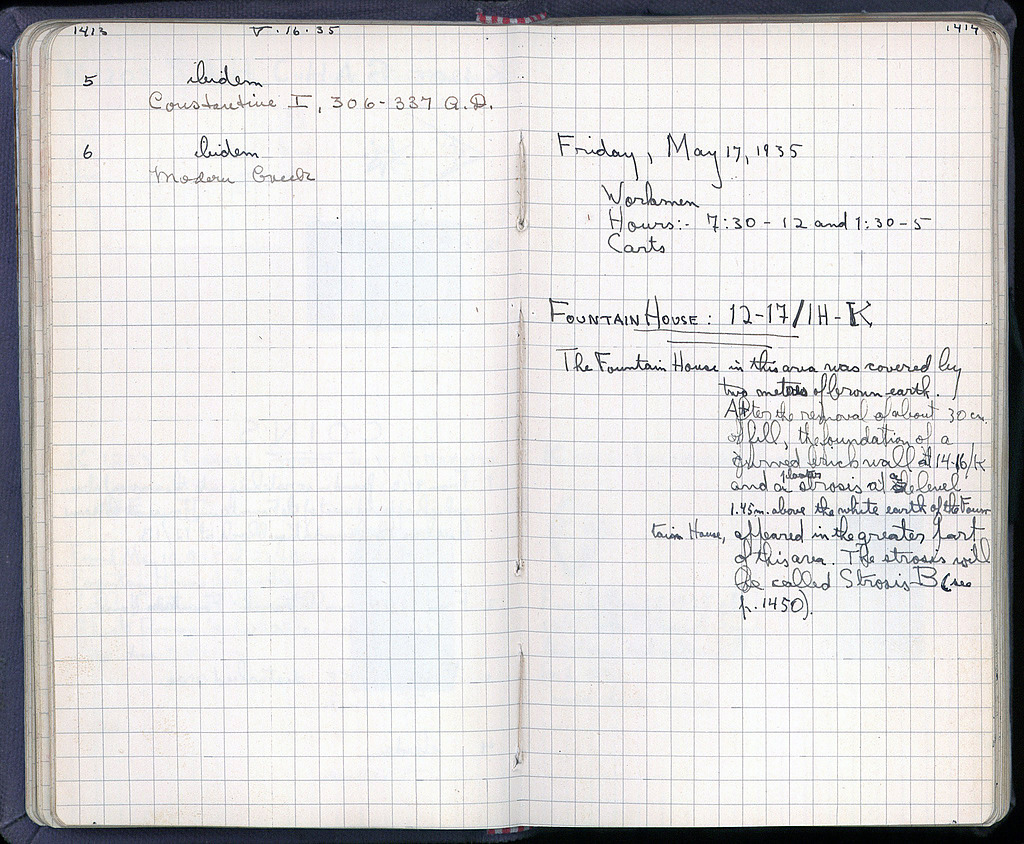 1413 V.16.35
5 ibidem
Constantine I, 306-337 A.D.
6 ibidem
Modern Greek
1414
Friday, May 17, 1935
Workmen
Hours:- 7:30 - 12 and 1:30-5
Carts
FOUNTAIN HOUSE: 12-17/IH-K
The Fountain House in this area was covered by
two metres of brown earth.
After the removal of about 30 cm.
of fill, the foundation of a
burned brick wall at 14-16/K
and a plaster strosis at a level
1.45m. above the white earth of the Foun
tain House, appeared in the greater part
of this area. The strosis will
be called Strosis B (see
p. 1450).